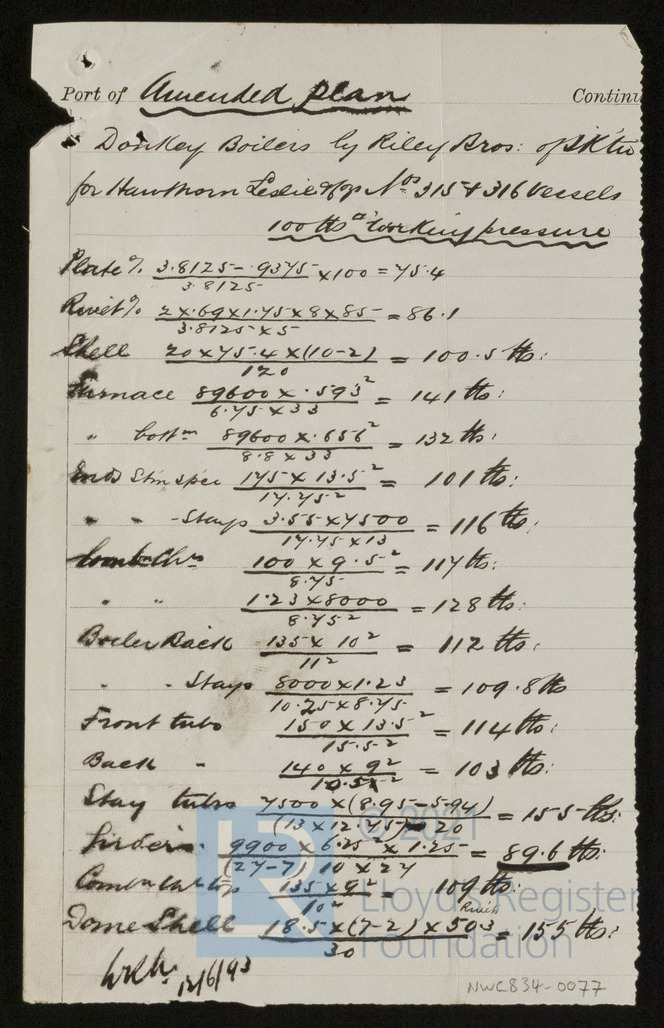 Port of Amended plan Continu
Donkey Boilers by Riley Bros: of SKtn
for Hawthorn Leslie & Co Nos 315 & 316 Vessels
100 lbs Working pressure
Plate % 3.8125 - .9375 / 3.8125 × 100 = 75.4
Rivet % 2 × .69 × 1.75 × 8 × 85 / 3.8125 × 5 = 86.1
Shell 20 × 75.4 × (10-2) / 120 = 100.5 lbs:
Furnace 89600 × .593² / 6.75 × 33 = 141 lbs:
" bottm 89600 × .656² / 8.8 × 33 = 132 lbs:
Ends Stm space 175 × 13.5² / 17.75² = 101 lbs:
" " - Stays 3.55 × 7500 / 17.75 × 13 = 116 lbs:
Comb Chr 100 × 9.5² / 8.75 = 117 lbs:
" " 1.23 × 8000 / 8.75² = 128 lbs:
Boiler Back 135 × 10² / 11² = 112 lbs:
" " Stays 8000 × 1.23 / 10.25 × 8.75 = 109.8 lbs
Front tubs 150 × 13.5² / 15.5² = 114 lbs:
Back " 140 × 9² / 10.5² = 103 lbs:
Stay tubes 7500 × (8.95 - 5.94) / (13 × 12.75) - 20 = 155 lbs:
Girders 9900 × 6.25² × 1.25 / (27-7) 10 × 27 = 89.6 lbs:
135 × 9² / 10² = 109 lbs:
Dome Shell 18.5 × (7-2) × 50.3 Rivets / 30 = 155 lbs:
12/6/93
NWC834-0077
© 2021
LR
Lloyd's Register
Foundation